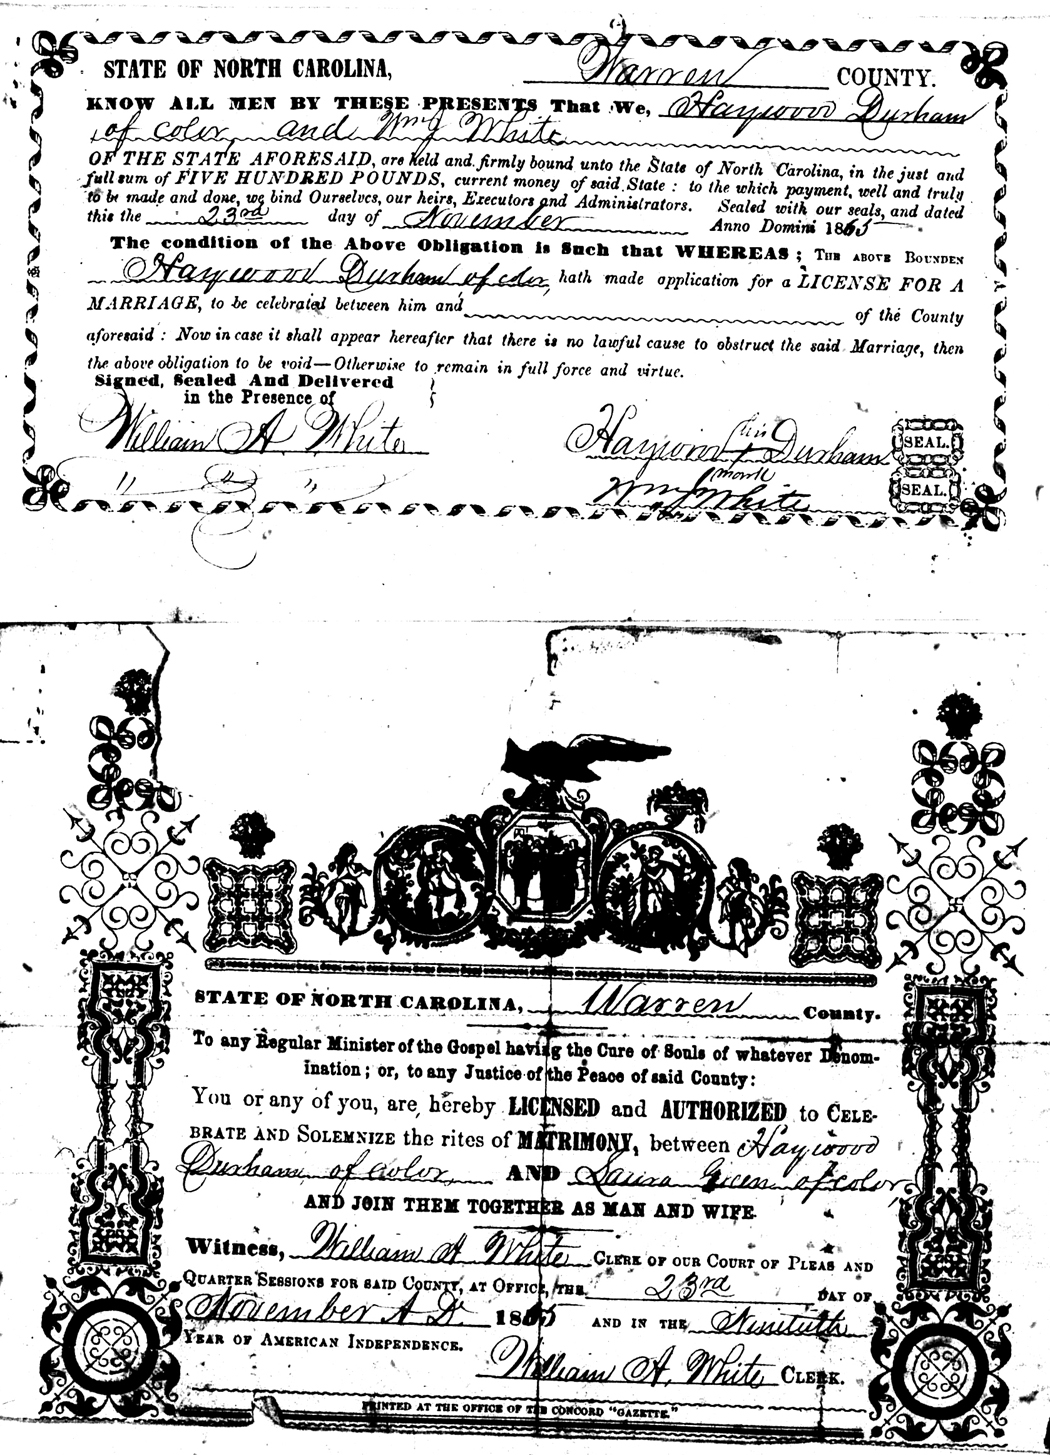 STATE OF NORTH CAROLINA, Warren COUNTY.
KNOW ALL MEN BY THESE PRESENTS That We, Haywood Durham
of color, and Wm J. White
OF THE STATE AFORESAID, are held and firmly bound unto the State of North Carolina, in the just and
full sum of FIVE HUNDRED POUNDS, current money of said State: to the which payment, well and truly
to be made and done, we bind Ourselves, our heirs, Executors and Administrators. Sealed with our seals, and dated
this the 23rd day of November Anno Domini 1865
The condition of the Above Obligation is Such that WHEREAS; THE ABOVE BOUNDEN
Haywood Durham of color, hath made application for a LICENSE FOR A
MARRIAGE, to be celebrated between him and of the County
aforesaid: Now in case it shall appear hereafter that there is no lawful cause to obstruct the said Marriage, then
the above obligation to be void—Otherwise to remain in full force and virtue.
Signed, Sealed And Delivered
in the Presence of
William A. White
Haywood his Durham SEAL.
mark
Wm J White SEAL.
STATE OF NORTH CAROLINA, Warren County.
To any Regular Minister of the Gospel having the Cure of Souls of whatever Denom-
ination; or, to any Justice of the Peace of said County:
You or any of you, are hereby LICENSED and AUTHORIZED to CELE-
BRATE AND SOLEMNIZE the rites of MATRIMONY, between Haywood
Durham, of color, AND Laura Green of color,
AND JOIN THEM TOGETHER AS MAN AND WIFE.
Witness, William A White CLERK OF OUR COURT OF PLEAS AND
QUARTER SESSIONS FOR SAID COUNTY, AT OFFICE, THE 23rd DAY OF
November A D. 1865 AND IN THE Ninetieth
YEAR OF AMERICAN INDEPENDENCE.
William A. White CLERK.
PRINTED AT THE OFFICE OF THE CONCORD "GAZETTE."